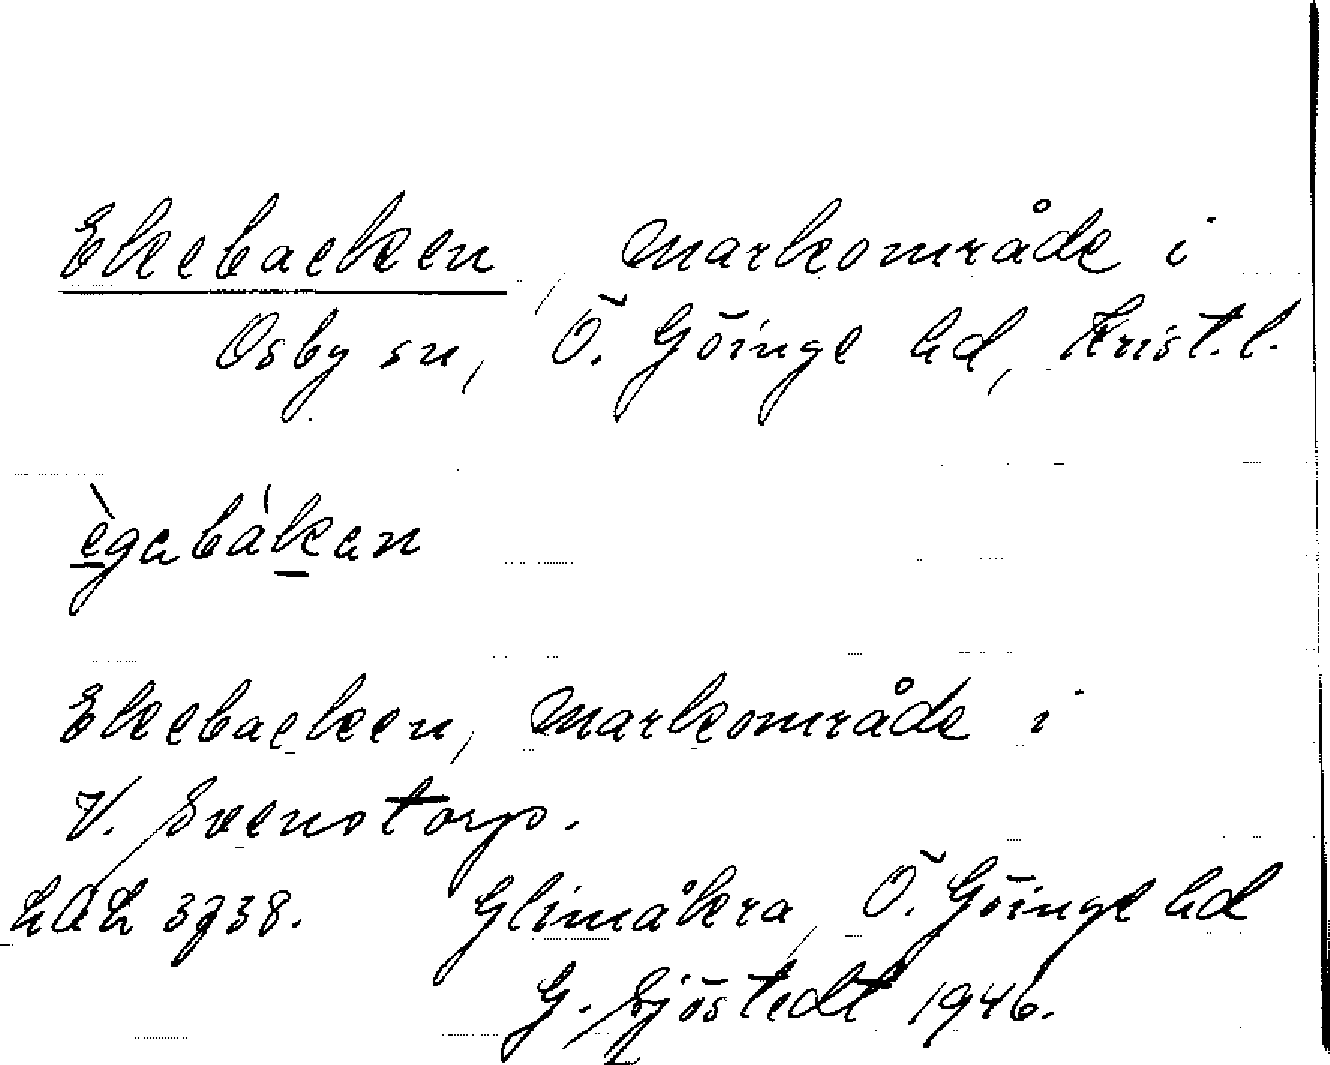 Ekebacken, markområde i
Osby sn, Ö. Göinge hd, Krist. l.
ègabákan
Ekebacken, markområde i
V. Svenstorp.
LAL 3738. Glimåkra, Ö. Göinge hd
G. Sjöstedt 1946.